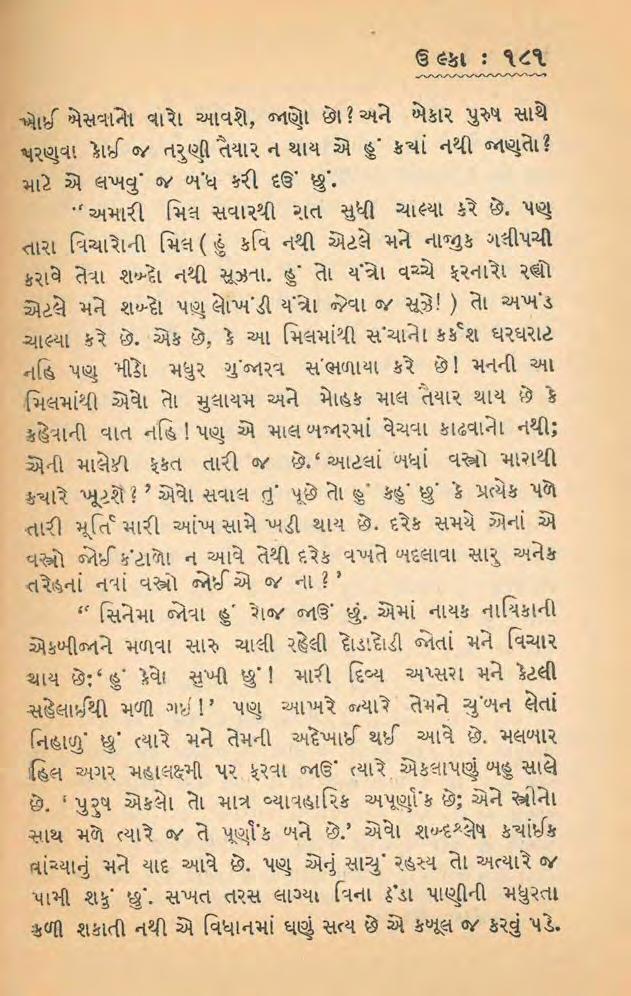 ઉલ્કા : ૧૮૧
ખોઈ બેસવાનો વારો આવશે, જાણો છો? અને બેકાર પુરુષ સાથે
પરણવા કોઈ જ તરુણી તૈયાર ન થાય એ હું ક્યાં નથી જાણતો?
માટે એ લખવું જ બંધ કરી દઉં છું.
“અમારી મિલ સવારથી રાત સુધી ચાલ્યા કરે છે. પણ
તારા વિચારોની મિલ ( હું કવિ નથી એટલે મને નાજુક ગલીપચી
કરાવે તેવા શબ્દો નથી સૂઝતા. હું તો યંત્રો વચ્ચે ફરનારો રહ્યો
એટલે મને શબ્દો પણ લોખંડી યંત્રો જેવા જ સૂઝે! ) તો અખંડ
ચાલ્યા કરે છે. એક છે, કે આ મિલમાંથી સંચાનો કર્કશ ઘરઘરાટ
નહિ પણ મીઠો મધુર ગુંજારવ સંભળાયા કરે છે! મનની આ
મિલમાંથી એવો તો મુલાયમ અને મોહક માલ તૈયાર થાય છે કે
કહેવાની વાત નહિ! પણ એ માલ બજારમાં વેચવા કાઢવાનો નથી;
એની માલેકી ફકત તારી જ છે. ‘આટલાં બધાં વસ્ત્રો મારાથી
ક્યારે ખૂટશે?’ એવો સવાલ તું પૂછે તો હું કહું છું કે પ્રત્યેક પળે
તારી મૂર્તિ મારી આંખ સામે ખડી થાય છે. દરેક સમયે એનાં એ
વસ્ત્રો જોઈ કંટાળો ન આવે તેથી દરેક વખતે બદલાવા સારુ અનેક
તરેહનાં નવાં વસ્ત્રો જોઈએ જ ના?’
“ સિનેમા જોવા હું રોજ જાઉં છું. એમાં નાયક નાયિકાની
એકબીજાને મળવા સારુ ચાલી રહેલી દોડાદોડી જોતાં મને વિચાર
થાય છે: ‘હું કેવો સુખી છું! મારી દિવ્ય અપ્સરા મને કેટલી
સહેલાઈથી મળી ગઈ!’ પણ આખરે જ્યારે તેમને ચુંબન લેતાં
નિહાળું છું ત્યારે મને તેમની અદેખાઈ થઈ આવે છે. મલબાર
હિલ અગર મહાલક્ષ્મી પર ફરવા જાઉં ત્યારે એકલાપણું બહુ સાલે
છે. ‘ પુરુષ એકલો તો માત્ર વ્યાવહારિક અપૂર્ણાંક છે; એને સ્ત્રીનો
સાથ મળે ત્યારે જ તે પૂર્ણાંક બને છે.’ એવો શબ્દશ્લેષ કયાંઈક
વાંચ્યાનું મને યાદ આવે છે. પણ એનું સાચું રહસ્ય તો અત્યારે જ
પામી શકું છું. સખત તરસ લાગ્યા વિના ઠંડા પાણીની મધુરતા
કળી શકાતી નથી એ વિધાનમાં ઘણું સત્ય છે એ કબૂલ જ કરવું પડે.